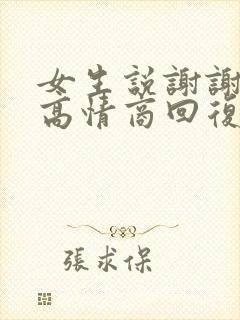 女生説謝謝
高情商回復
張求保